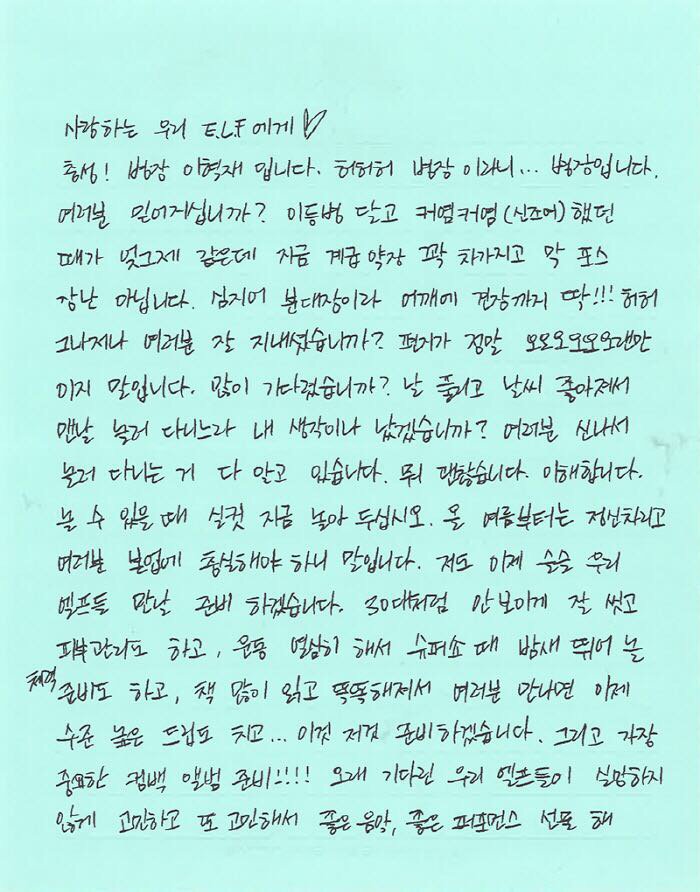 사랑하는 우리 E.L.F에게♡
충성! 병장 이혁재 입니다. 허허허 병장 이라니... 병장입니다.
여러분 믿어지십니까? 이등병 달고 커염커염(신조어)했던
때가 엊그제 같은데 지금 계급 약장 꽉 차가지고 막 포스
장난 아닙니다. 심지어 분대장이라 어깨에 견장까지 딱!!! 허허
그나저나 여러분 잘 지내셨습니까? 편지가 정말 오오오오오오랜만
이지 말입니다. 많이 기다렸습니까? 날 풀리고 날씨 좋아져서
맨날 놀러 다니느라 내 생각이나 났겠습니까? 여러분 신나서
놀러 다니는 거 다 알고 있습니다. 뭐 괜찮습니다. 이해합니다.
놀 수 있을 때 실컷 지금 놀아 두십시오. 올 여름부터는 정신차리고
여러분 본업에 충실해야 하니 말입니다. 저도 이제 슬슬 우리
엘프들 만날 준비 하겠습니다. 30대처럼 안보이게 잘 씻고
피부관리도 하고, 운동 열심히 해서 슈퍼쇼 때 밤새 뛰어 놀
체력 준비도 하고, 책 많이 읽고 똑똑해져서 여러분 만나면 이제
수준 높은 드립도 치고... 이것 저것 준비하겠습니다. 그리고 가장
중요한 컴백 앨범 준비!!!! 오래 기다린 우리 엘프들이 실망하지
않게 고민하고 또 고민해서 좋은 음악, 좋은 퍼포먼스 선물 해